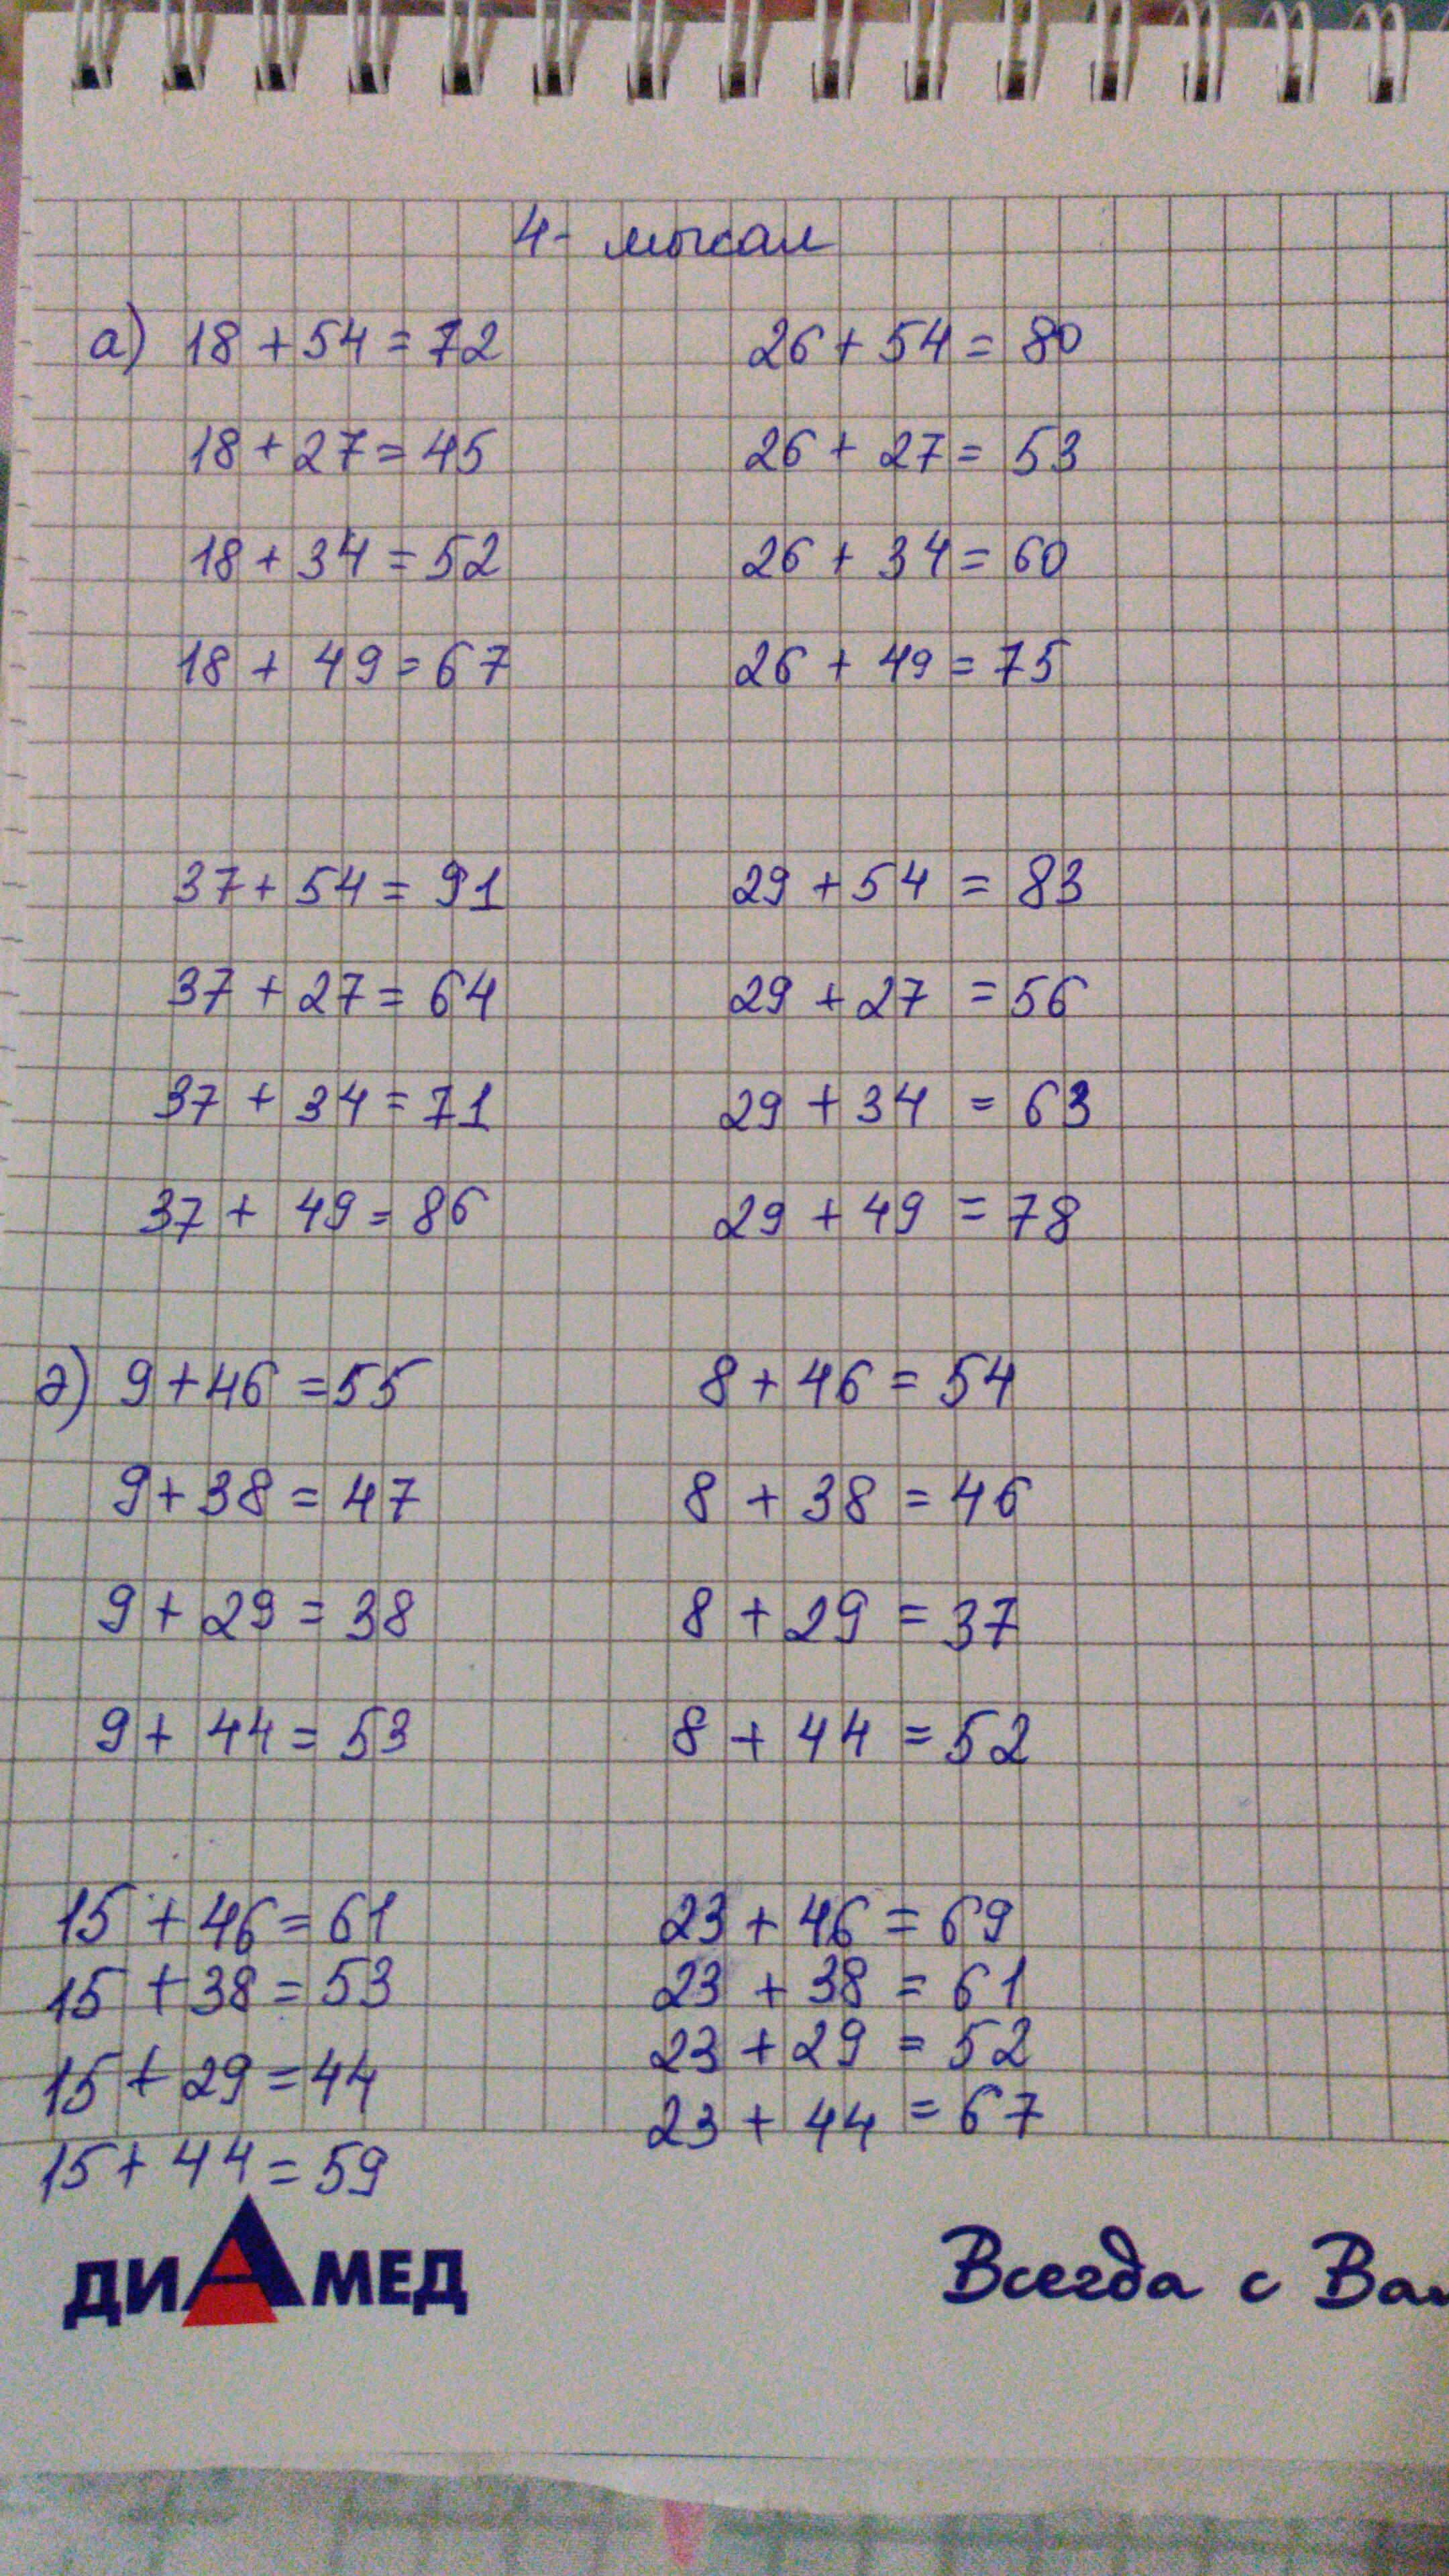 4- мысал
а) 18 + 54 = 72 26 + 54 = 80
18 + 27 = 45 26 + 27 = 53
18 + 34 = 52 26 + 34 = 60
18 + 49 = 67 26 + 49 = 75
37 + 54 = 91 29 + 54 = 83
37 + 27 = 64 29 + 27 = 56
37 + 34 = 71 29 + 34 = 63
37 + 49 = 86 29 + 49 = 78
ә) 9 + 46 = 55 8 + 46 = 54
9 + 38 = 47 8 + 38 = 46
9 + 29 = 38 8 + 29 = 37
9 + 44 = 53 8 + 44 = 52
15 + 46 = 61 23 + 46 = 69
15 + 38 = 53 23 + 38 = 61
15 + 29 = 44 23 + 29 = 52
15 + 44 = 59 23 + 44 = 67
ДИАМЕД Всегда с